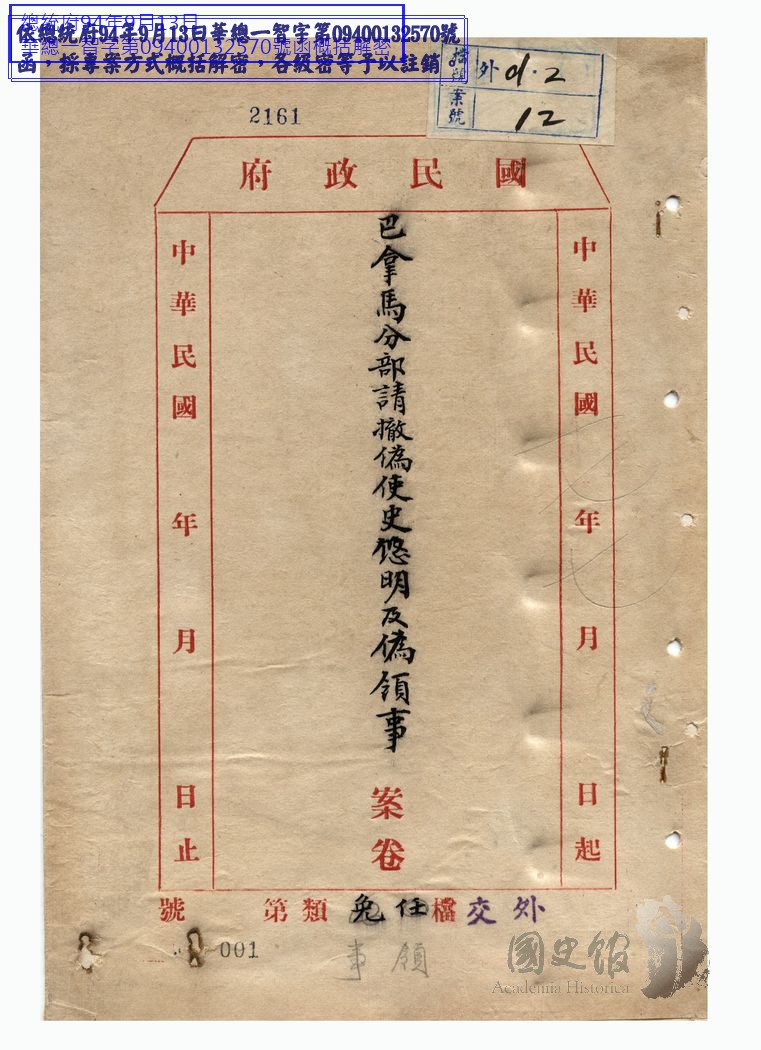 總統府94年9月13日
華總一智字第09400132570號函概括解密
依總統府94年9月13日華總一智字第09400132570號
函，採專案方式概括解密，各級密等予以註銷。
檔號 外 01.2
案號 12
2161
國民政府
中華民國 年 月 日起
巴拿馬分部請撤偽使史悠明及偽領事
案卷
中華民國 年 月 日止
外交檔任免類第 號
領事
001
國史館
Academia Historica